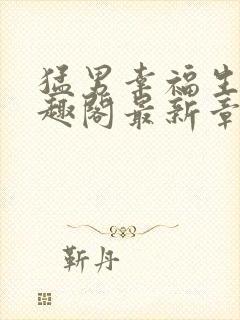 猛男幸福生
趣阁最新章
靳丹